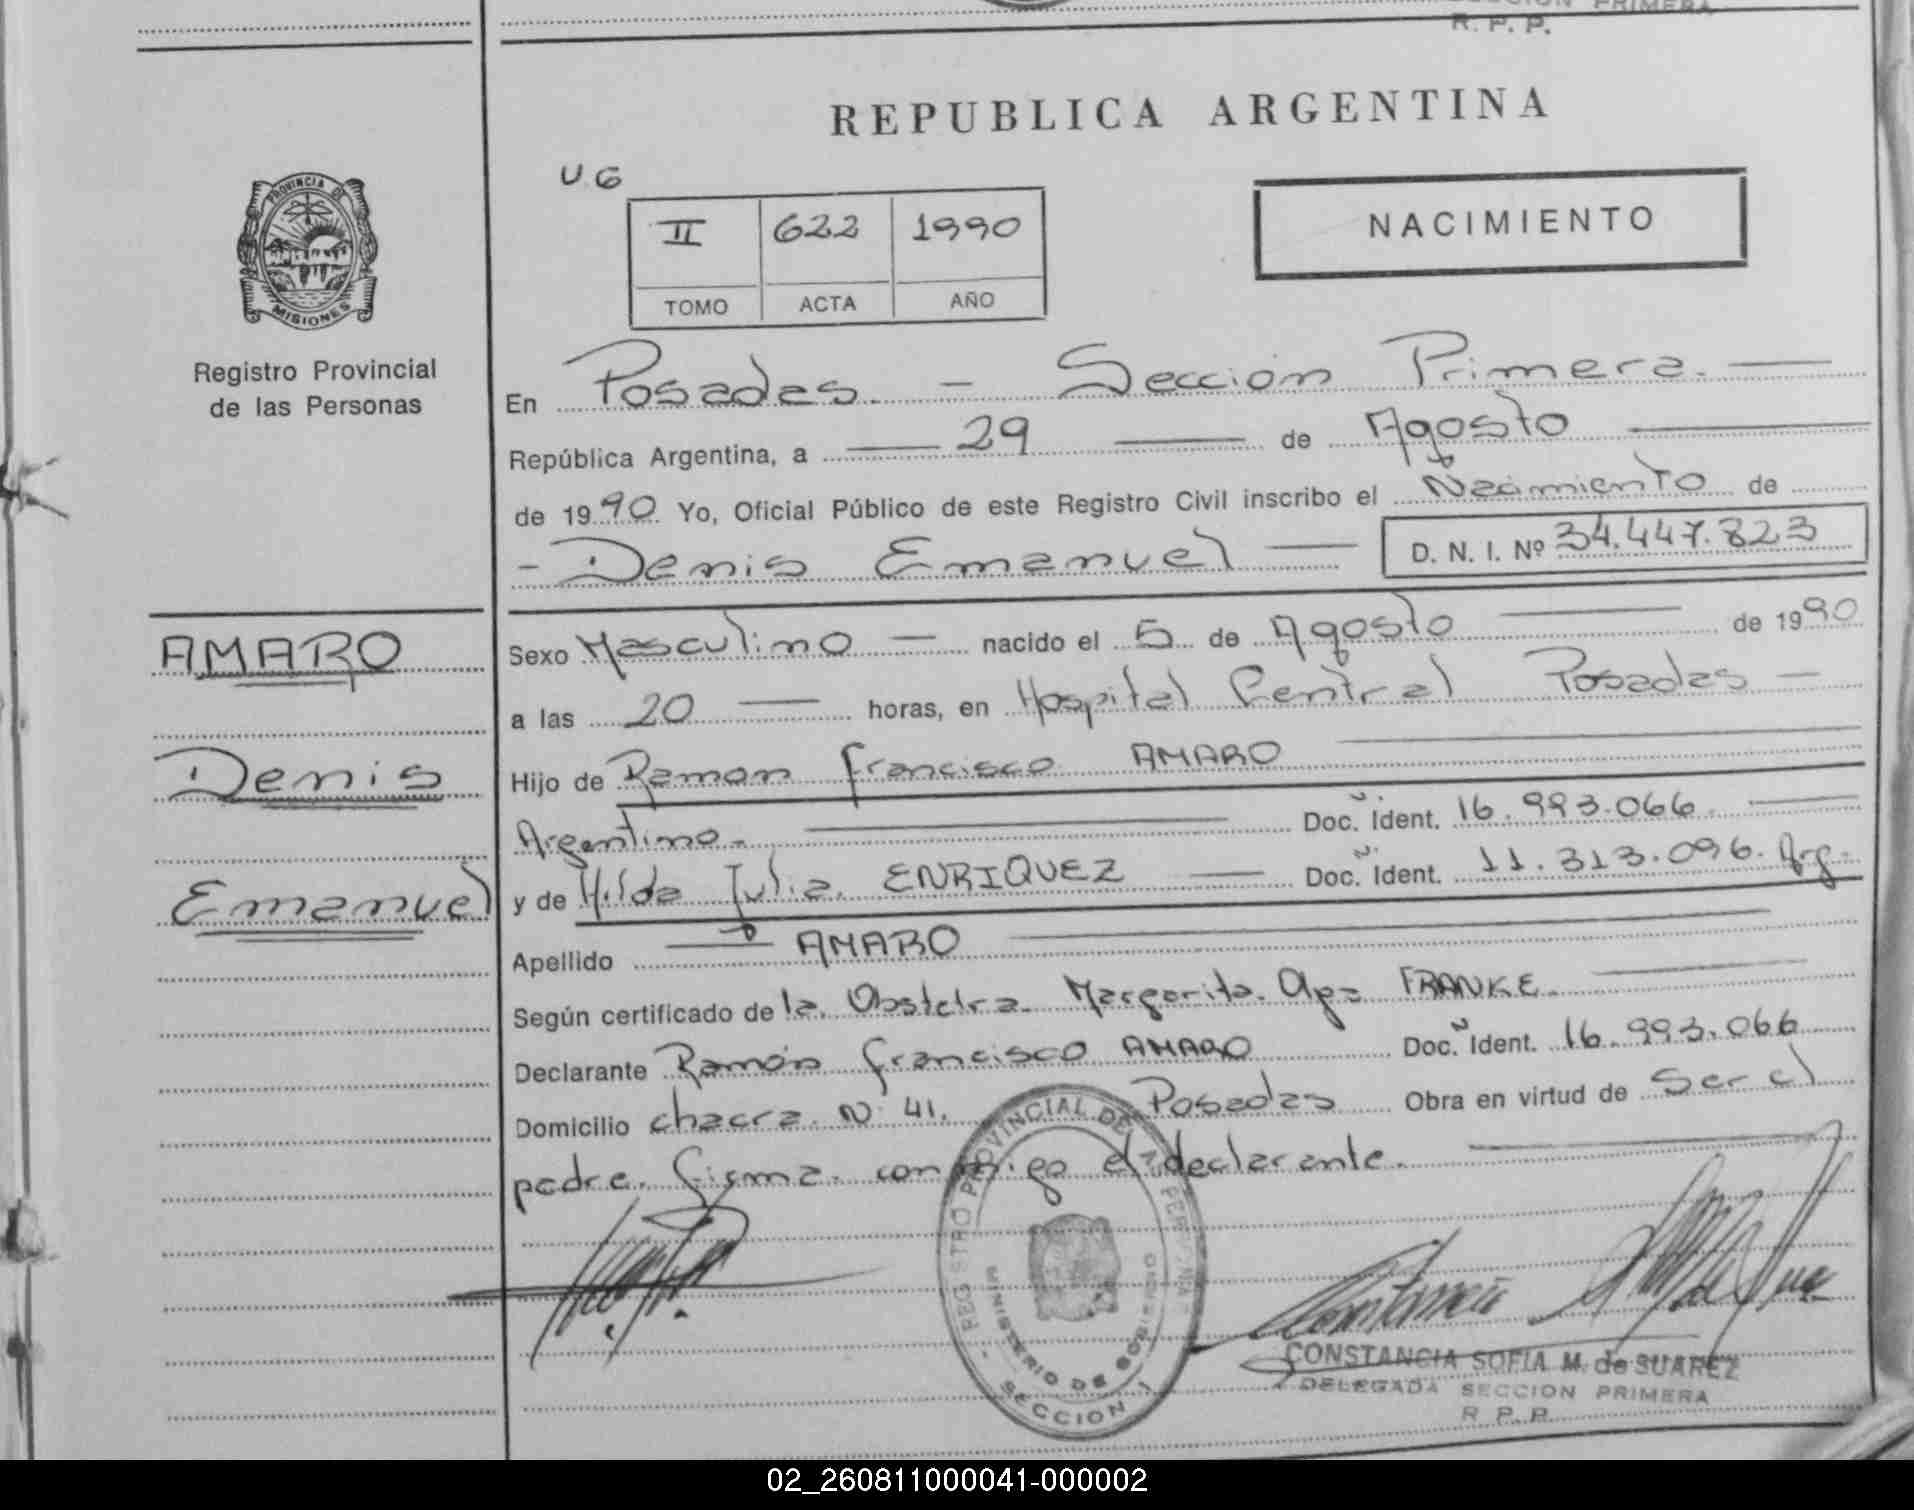 SECCION PRIMERA
R. P. P.
REPUBLICA ARGENTINA
U.G
PROVINCIA DE
MISIONES
II 622 1990
TOMO ACTA AÑO
NACIMIENTO
Registro Provincial
de las Personas
En Posadas. - Sección Primera.
República Argentina, a 29 de Agosto
de 1990 Yo, Oficial Público de este Registro Civil inscribo el Nacimiento de
- Denis Emanuel D. N. I. Nº 34.447.823
AMARO
Denis
Emanuel
Sexo Masculino nacido el 5 de Agosto de 1990
a las 20 horas, en Hospital Central Posadas
Hijo de Ramon Francisco AMARO
Argentino. Doc. Ident. 16.993.066.
y de Hilda Julia. ENRIQUEZ Doc. Ident. 11.313.096. Arg.
Apellido AMARO
Según certificado de la Obstetra. Margarita. FRANKE.
Declarante Ramón Francisco AMARO Doc. Ident. 16.993.066
Domicilio chacra. Nº 41. Posadas Obra en virtud de ser el
padre. firma. conmigo el declarante.
REGISTRO PROVINCIAL DE LAS PERSONAS
MINISTERIO DE GOBIERNO
SECCION 1
CONSTANCIA SOFIA M. de SUAREZ
DELEGADA SECCION PRIMERA
R. P. P.
02_260811000041-000002